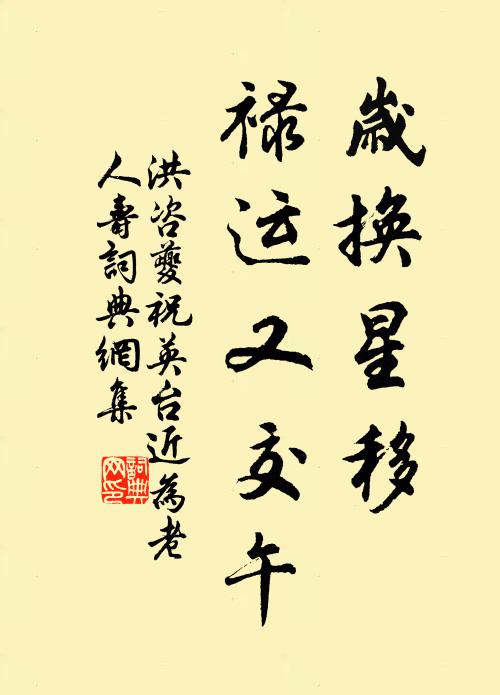 歲換星移
禄运又交午
洪咨夔祝英台近為老
人壽詞典網集
詞典网印